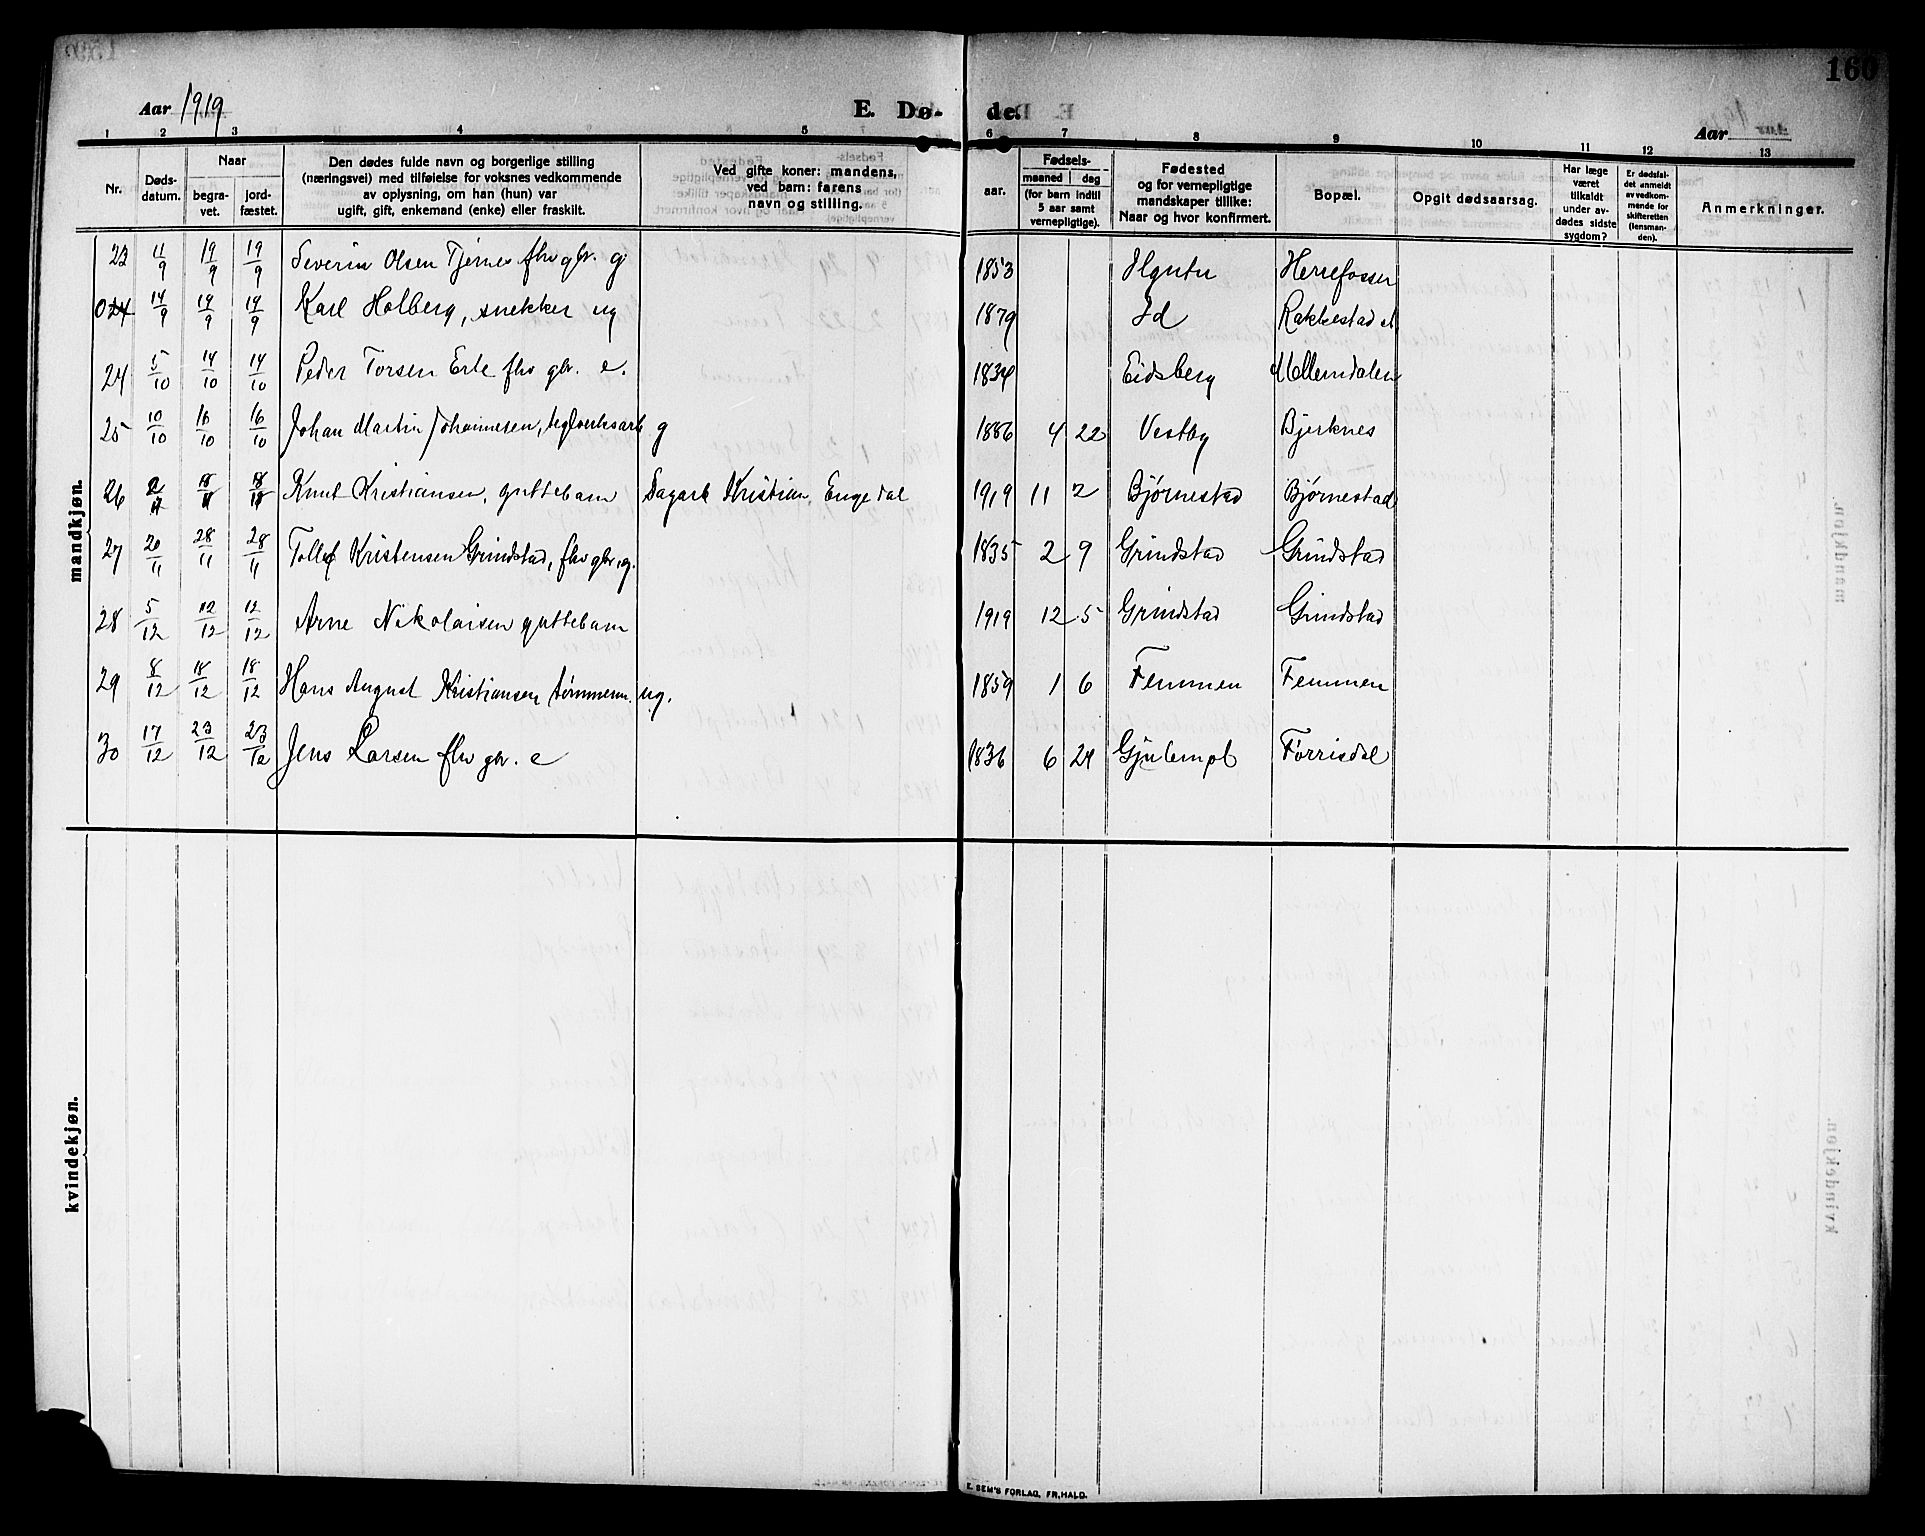 160
Aar 1919 E. Dø- de. Aar
1 2 3 4 5 6 7 8 9 10 11 12 13
Nr. Døds-datum. Naar begra-vet. jord-fæstet. Den dødes fulde navn og borgerlige stilling (næringsvei) med tilføielse for voksnes vedkommende av oplysning, om han (hun) var ugift, gift, enkemand (enke) eller fraskilt. Ved gifte koner: mandens, ved barn: farens navn og stilling. Fødsels- aar. maaned dag (for barn indtil 5 aar samt vernepligtige). Fødested og for vernepligtige mandskaper tillike: Naar og hvor konfirmert. Bopæl. Opgit dødsaarsag. Har læge været tilkaldt under av-dødes sidste sygdom? Er dødsfal-det anmeldt av vedkom-mende for skifteretten (lensman-den). Anmerkninger.
mandkjøn.
23 11/9 19/9 19/9 Severin Olsen Tjernes fhv gbr. g. 1853 Herrefossen
024 14/9 19/9 19/9 Karl Holberg, snekker ug 1879 Id Rakkestad st.
24 5/10 14/10 14/10 Peder Torsen Erte fhv gbr. e. 1834 Eidsberg Mellemdalen
25 10/10 16/10 16/10 Johan Martin Johannesen, teglverksarb g 1886 4 22 Vestby Bjerknes
26 2/11 18/11 18/11 Knut Kristiansen, guttebarn Dagarb Kristian Engedal 1919 11 2 Bjørnestad Bjørnestad
27 20/11 28/11 28/11 Tollef Kristensen Grindstad, fhv gbr, g. 1835 2 9 Grindstad Grindstad
28 5/12 12/12 12/12 Arne Nikolaisen guttebarn 1919 12 5 Grindstad Grindstad
29 8/12 18/12 18/12 Hans August Kristiansen tømmerm. ug. 1859 1 6 Femmen Femmen
30 17/12 23/12 23/12 Jens Larsen fhv gbr. e 1836 6 24 Gjulempl Førrisdal
kvindekjøn.
E. SEM'S FORLAG, FR.HALD.